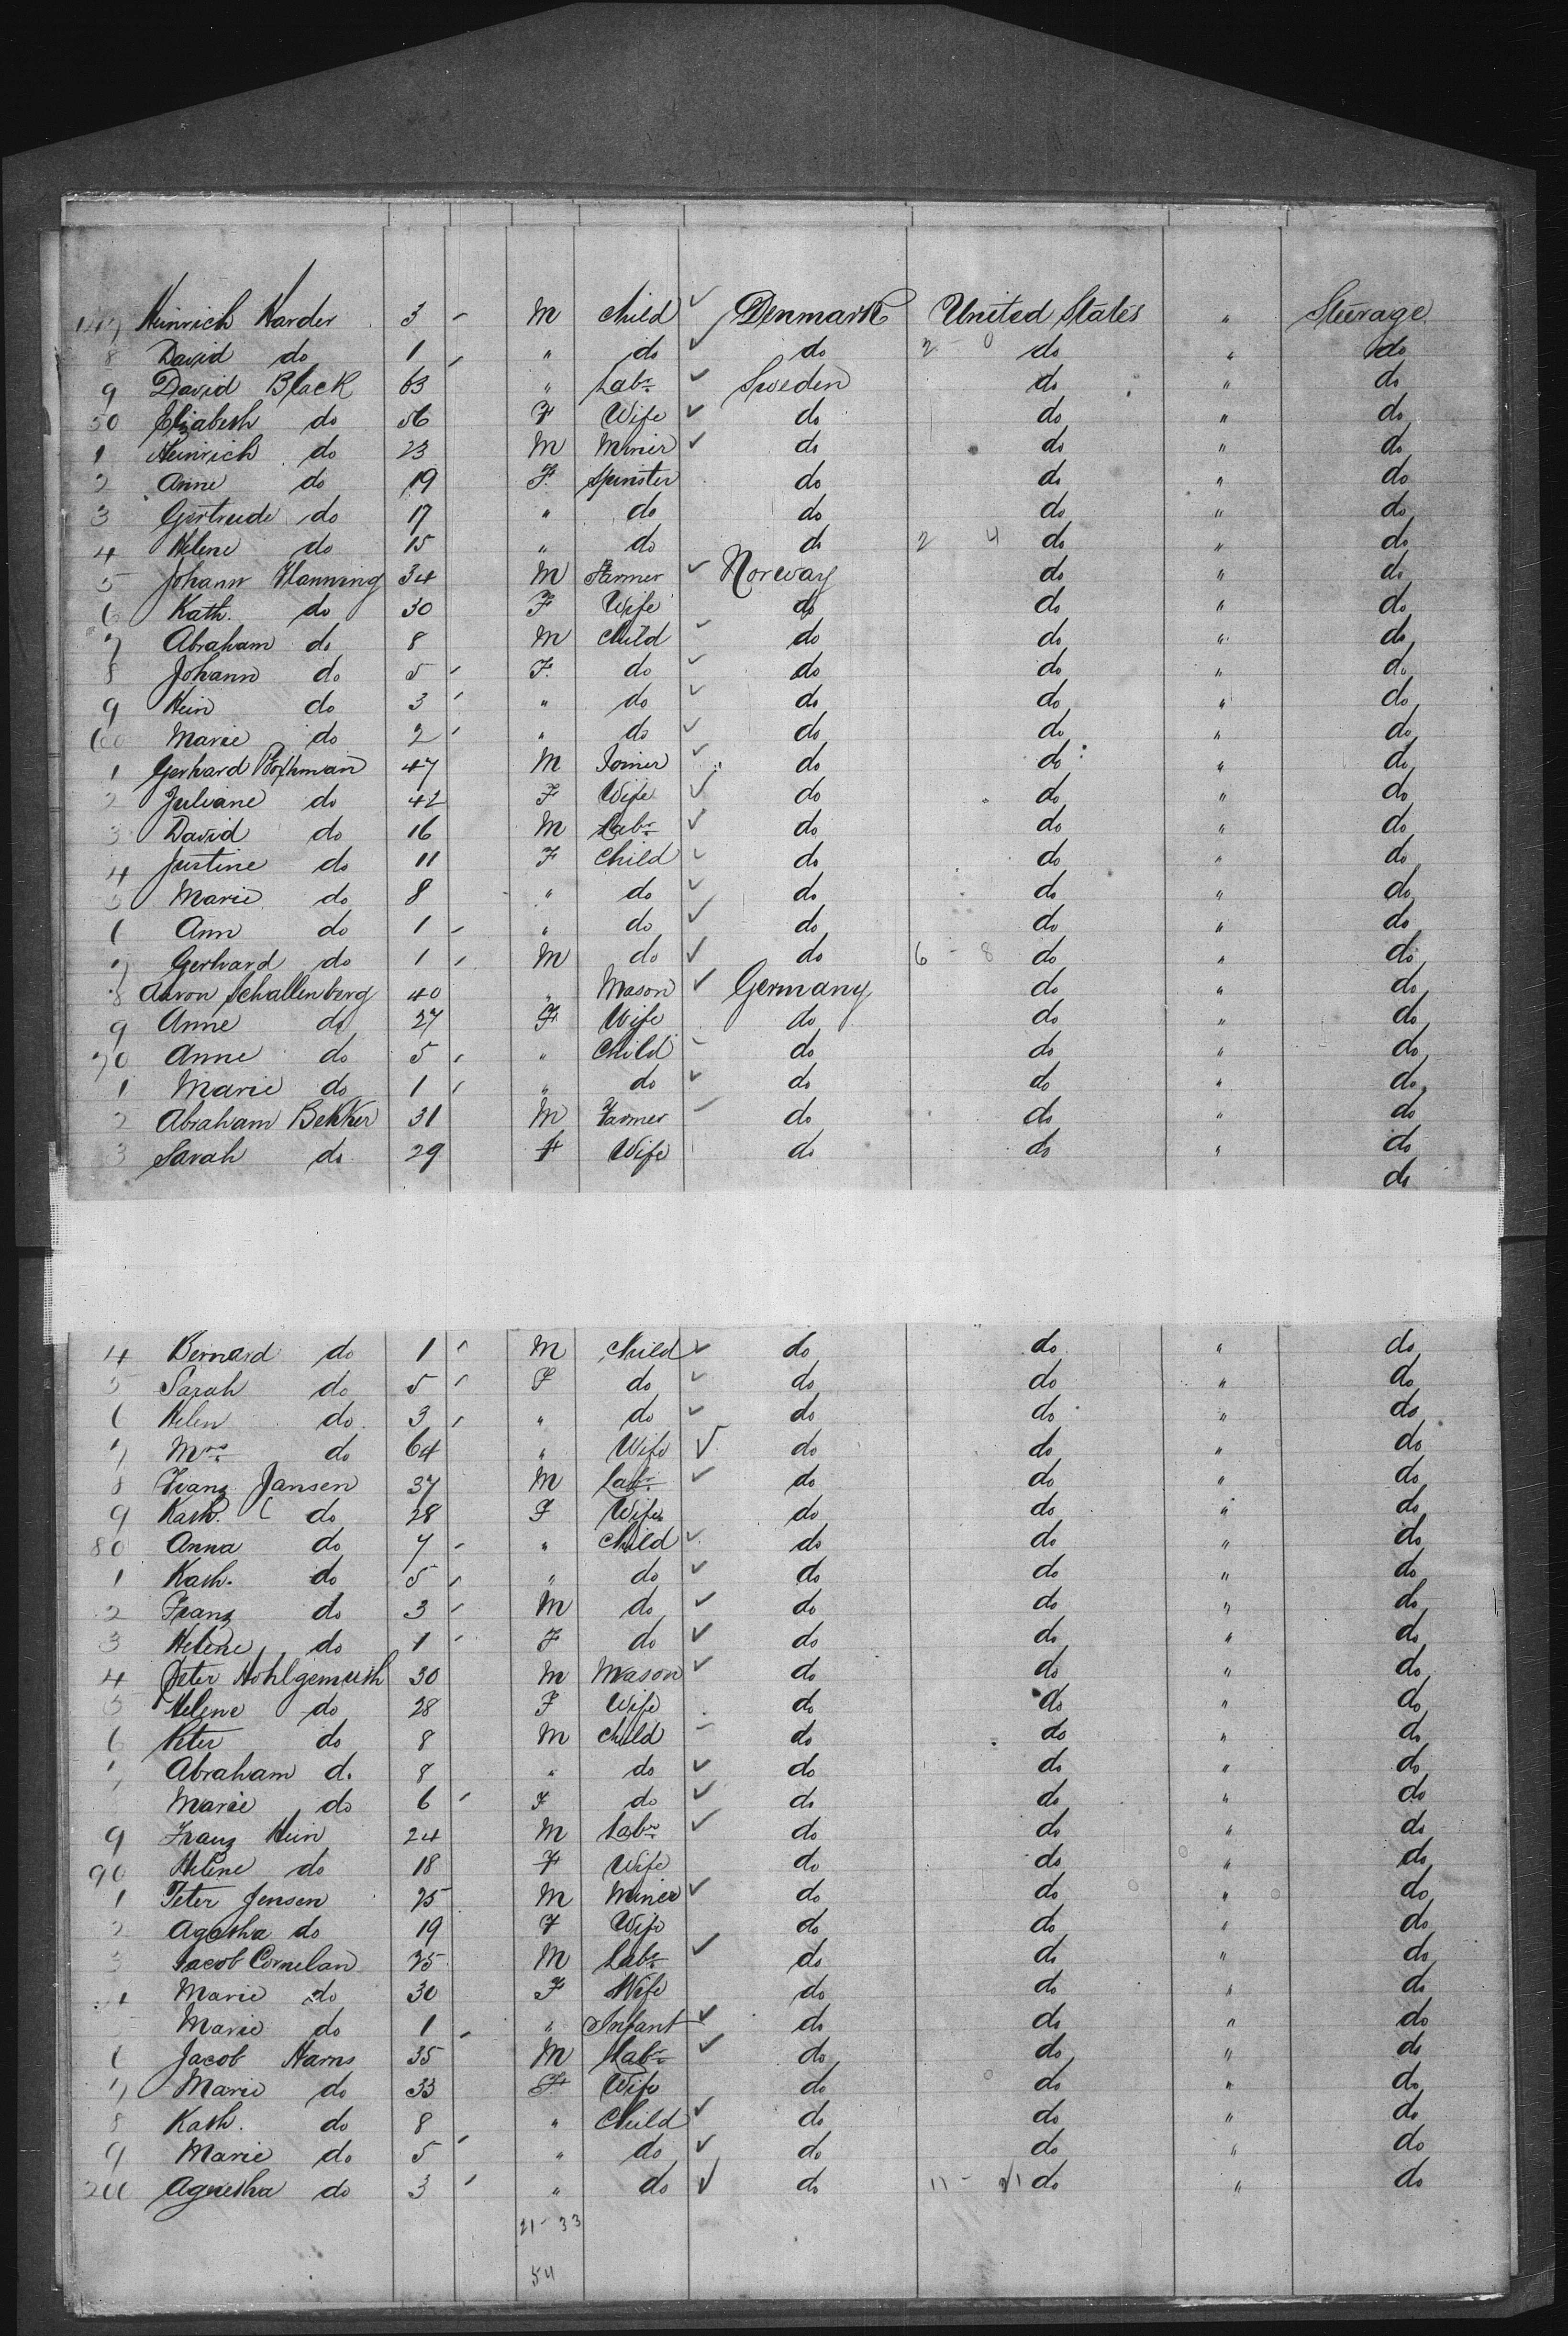 147 Heinrich Harder 3 - M Child ✓ Denmark United States " Steerage
8 David do 1 - " do ✓ do 2 - 0 do " do
9 David Black 63 " Labr ✓ Sweden do " do
50 Elizabeth do 56 F Wife ✓ do do " do
1 Heinrich do 23 M Miner ✓ do do " do
2 Anne do 19 F. Spinster do do " do
3 Gertrude do 17 " do do do " do
4 Helene do 15 " do do 2 4 do " do
5 Johann Hanning 34 M Farmer ✓ Norway do " do
6 Kath. do 30 F Wife do do " do
7 Abraham do 8 M Child ✓ do do " do
8 Johann do 5 - F. do ✓ do do " do
9 Hein do 3 - " do ✓ do do " do
60 Marie do 2 - " do ✓ do do " do
1 Gerhard 47 M Joiner ✓ do do " do
2 Juliane do 42 F Wife ✓ do do " do
3 David do 16 M Labr ✓ do do " do
4 Justine do 11 F Child ✓ do do " do
5 Marie do 8 " do ✓ do do " do
6 Ann do 1 - " do ✓ do do " do
7 Gerhard do 1 - M do ✓ do 6 - 8 do " do
8 Aaron Schallenberg 40 " Mason ✓ Germany do " do
9 Anne do 27 F Wife do do " do
70 Anne do 5 - " Child ✓ do do " do
1 Marie do 1 - " do ✓ do do " do
2 Abraham Bekker 31 M Farmer ✓ do do " do
3 Sarah do 29 F Wife do do " do
do
4 Bernard do 1 - M Child ✓ do do " do
5 Sarah do 5 - F do ✓ do do " do
6 Helen do 3 - " do ✓ do do " do
7 Mrs do 64 " Wife ✓ do do " do
8 Franz Jansen 37 M Labr ✓ do do " do
9 Kath. do 28 F Wife do do " do
80 Anna do 7 - " Child ✓ do do " do
1 Kath. do 5 - " do ✓ do do " do
2 Franz do 3 - M do ✓ do do " do
3 Helene do 1 - F do ✓ do do " do
4 Peter Hohlgemuth 30 M Mason ✓ do do " do
5 Helene do 28 F Wife do do " do
6 Peter do 8 M Child ✓ do do " do
7 Abraham do 8 " do ✓ do do " do
Marie do 6 - F do ✓ do do " do
9 Franz Hein 24 M Labr ✓ do do " do
90 Helene do 18 F Wife do do " do
1 Peter Jensen 25 M Miner ✓ do do " do
2 Agatha do 19 F Wife do do " do
3 Jacob Cornelan 25 M Labr ✓ do do " do
4 Marie do 30 F Wife do do " do
5 Marie do 1 - " Infant ✓ do do " do
6 Jacob Harns 35 M Labr ✓ do do " do
7 Marie do 33 F Wife do do " do
8 Kath. do 8 " Child ✓ do do " do
9 Marie do 5 - " do ✓ do do " do
200 Agnetha do 3 - " do ✓ do 11 - 21 do " do
21 - 33
54